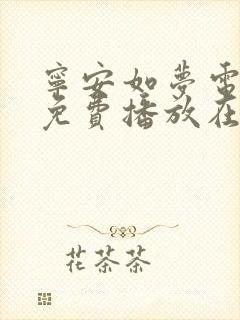 寧安如夢電
免費播放在
花茶茶